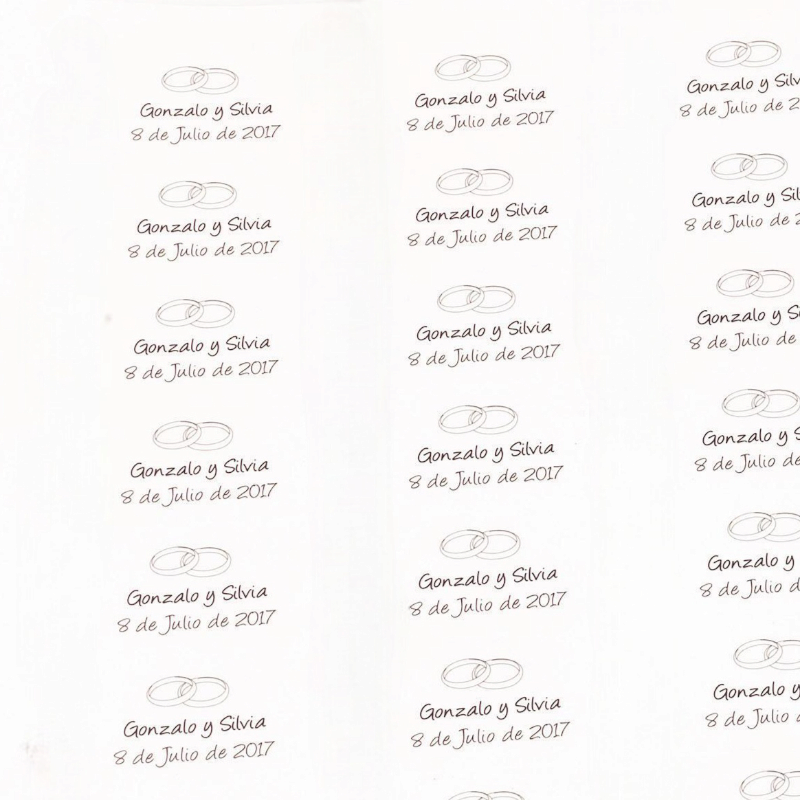 Gonzalo y Silvia
8 de Julio de 2017
Gonzalo y Silvia
8 de Julio de 2017
Gonzalo y Silvia
8 de Julio de 2017
Gonzalo y Silvia
8 de Julio de 2017
Gonzalo y Silvia
8 de Julio de 2017
Gonzalo y Silvia
8 de Julio de 2017
Gonzalo y Silvia
8 de Julio de 2017
Gonzalo y Silvia
8 de Julio de 2017
Gonzalo y Silvia
8 de Julio de 2017
Gonzalo y Silvia
8 de Julio de 2017
Gonzalo y Silvia
8 de Julio de 2017
Gonzalo y Silvia
8 de Julio de 2017
Gonzalo y
8 de Julio de
Gonzalo y
8 de Julio de
Gonzalo y
8 de Julio de
Gonzalo y
8 de Julio de
Gonzalo y
8 de Julio
Gonzalo y
8 de Julio